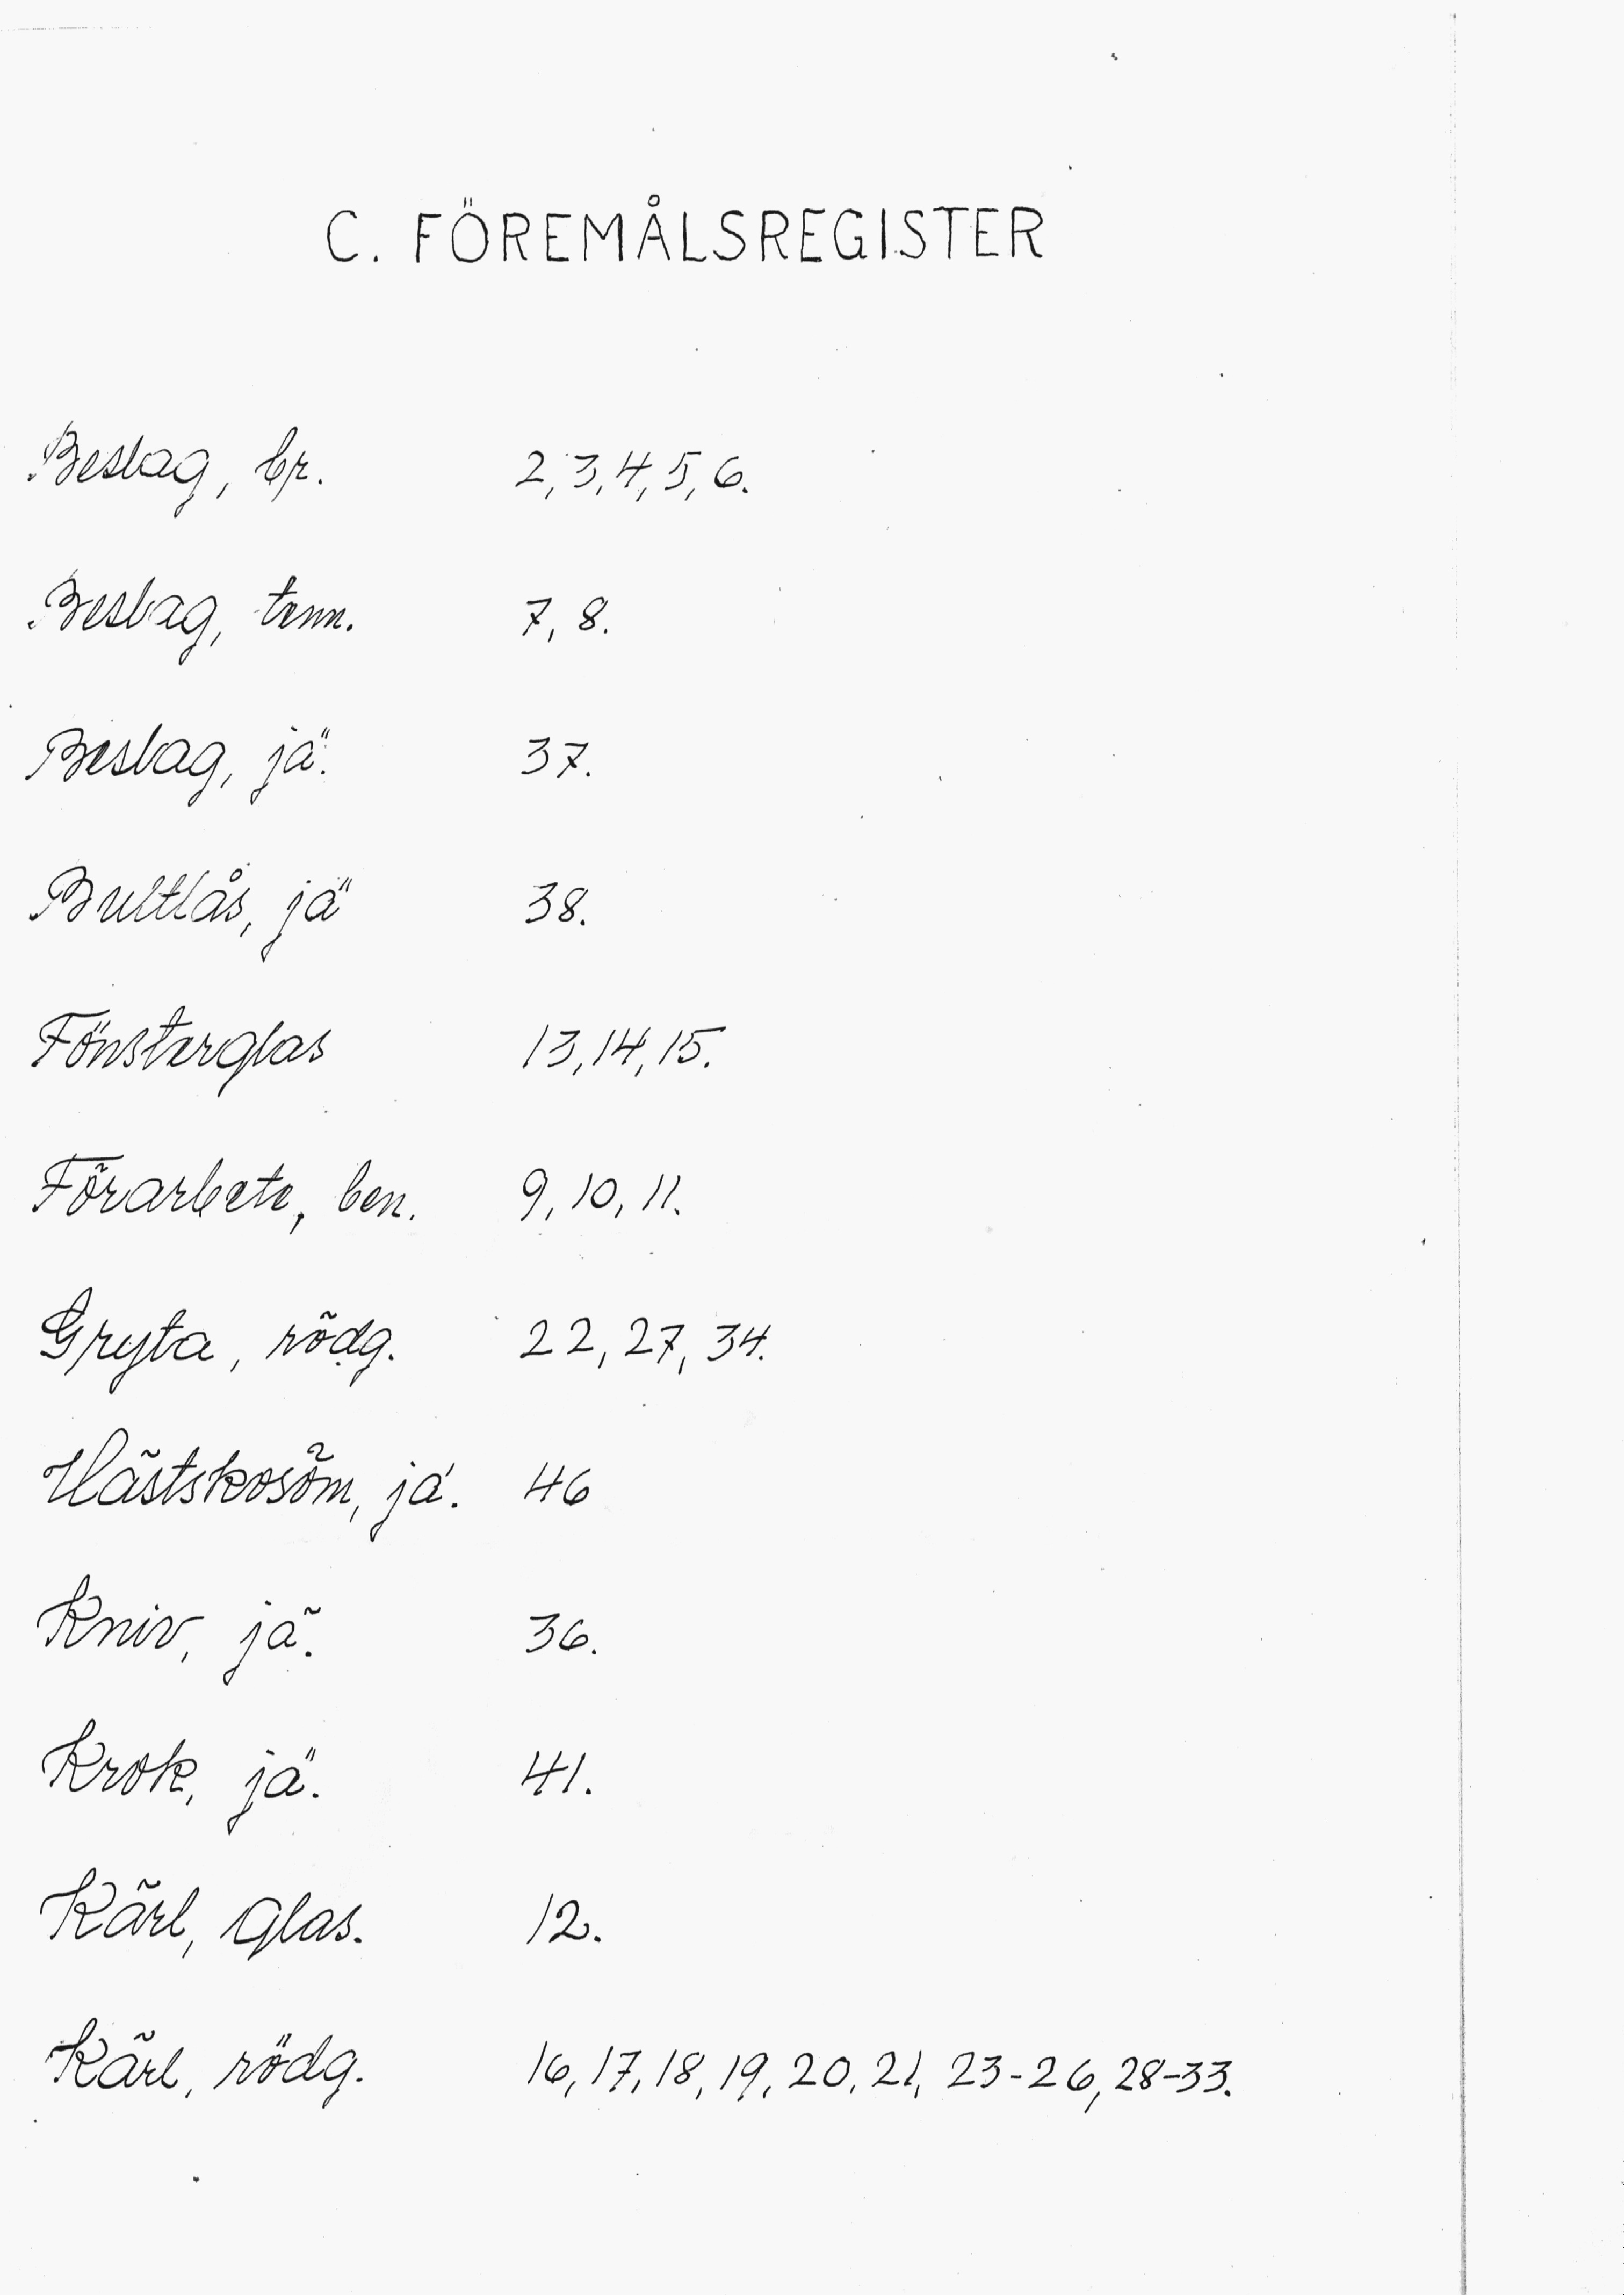 C. FÖREMÅLSREGISTER
Beslag, br. 2, 3, 4, 5, 6.
Beslag, tenn. 7, 8.
Beslag, jä. 37.
Bultlås, jä 38.
Fönsterglas 13, 14, 15.
Förarbete, ben. 9, 10, 11.
Gryta, rödg. 22, 27, 34.
Hästskosöm, jä. 46
Kniv, jä. 36.
Krok, jä. 41.
Kärl, glas. 12.
Kärl, rödg. 16, 17, 18, 19, 20, 21, 23-26, 28-33.